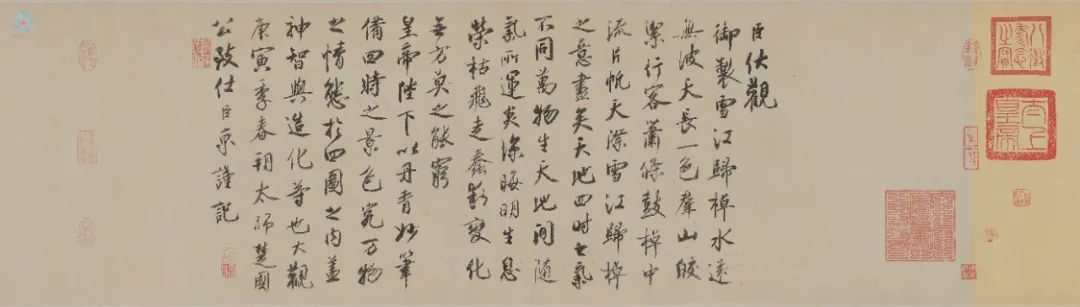 臣伏觀
御製雪江歸棹水遠
無波天長一色羣山皎
潔行客蕭條鼓棹中
流片帆天際雪江歸棹
之意盡矣天地四時之氣
不同萬物生天地間隨
氣所運炎涼晦明生息
榮枯飛走蠢動變化
無方莫之能窮
皇帝陛下以丹青妙筆
備四時之景色究万物
之情態於四圖之内蓋
神智與造化等也大觀
庚寅季春朔太師楚國
公致仕臣京謹記
八徵耄念之寶
太上皇帝